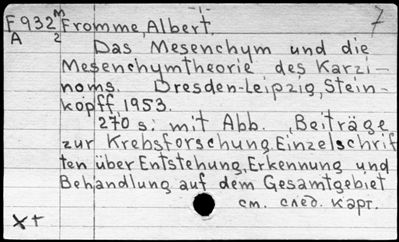 -1- 7
F932m Fromme, Albert.
A 2
Das Mesenchym und die
Mesenchymtheorie des Karzi-
noms. Dresden-Leipzig, Stein-
kopff, 1953.
270 s. mit Abb. „Beiträge
zur Krebsforschung. Einzelschrif
ten über Entstehung, Erkennung und
Behandlung auf dem Gesamtgebiet
см. след. карт.
X+